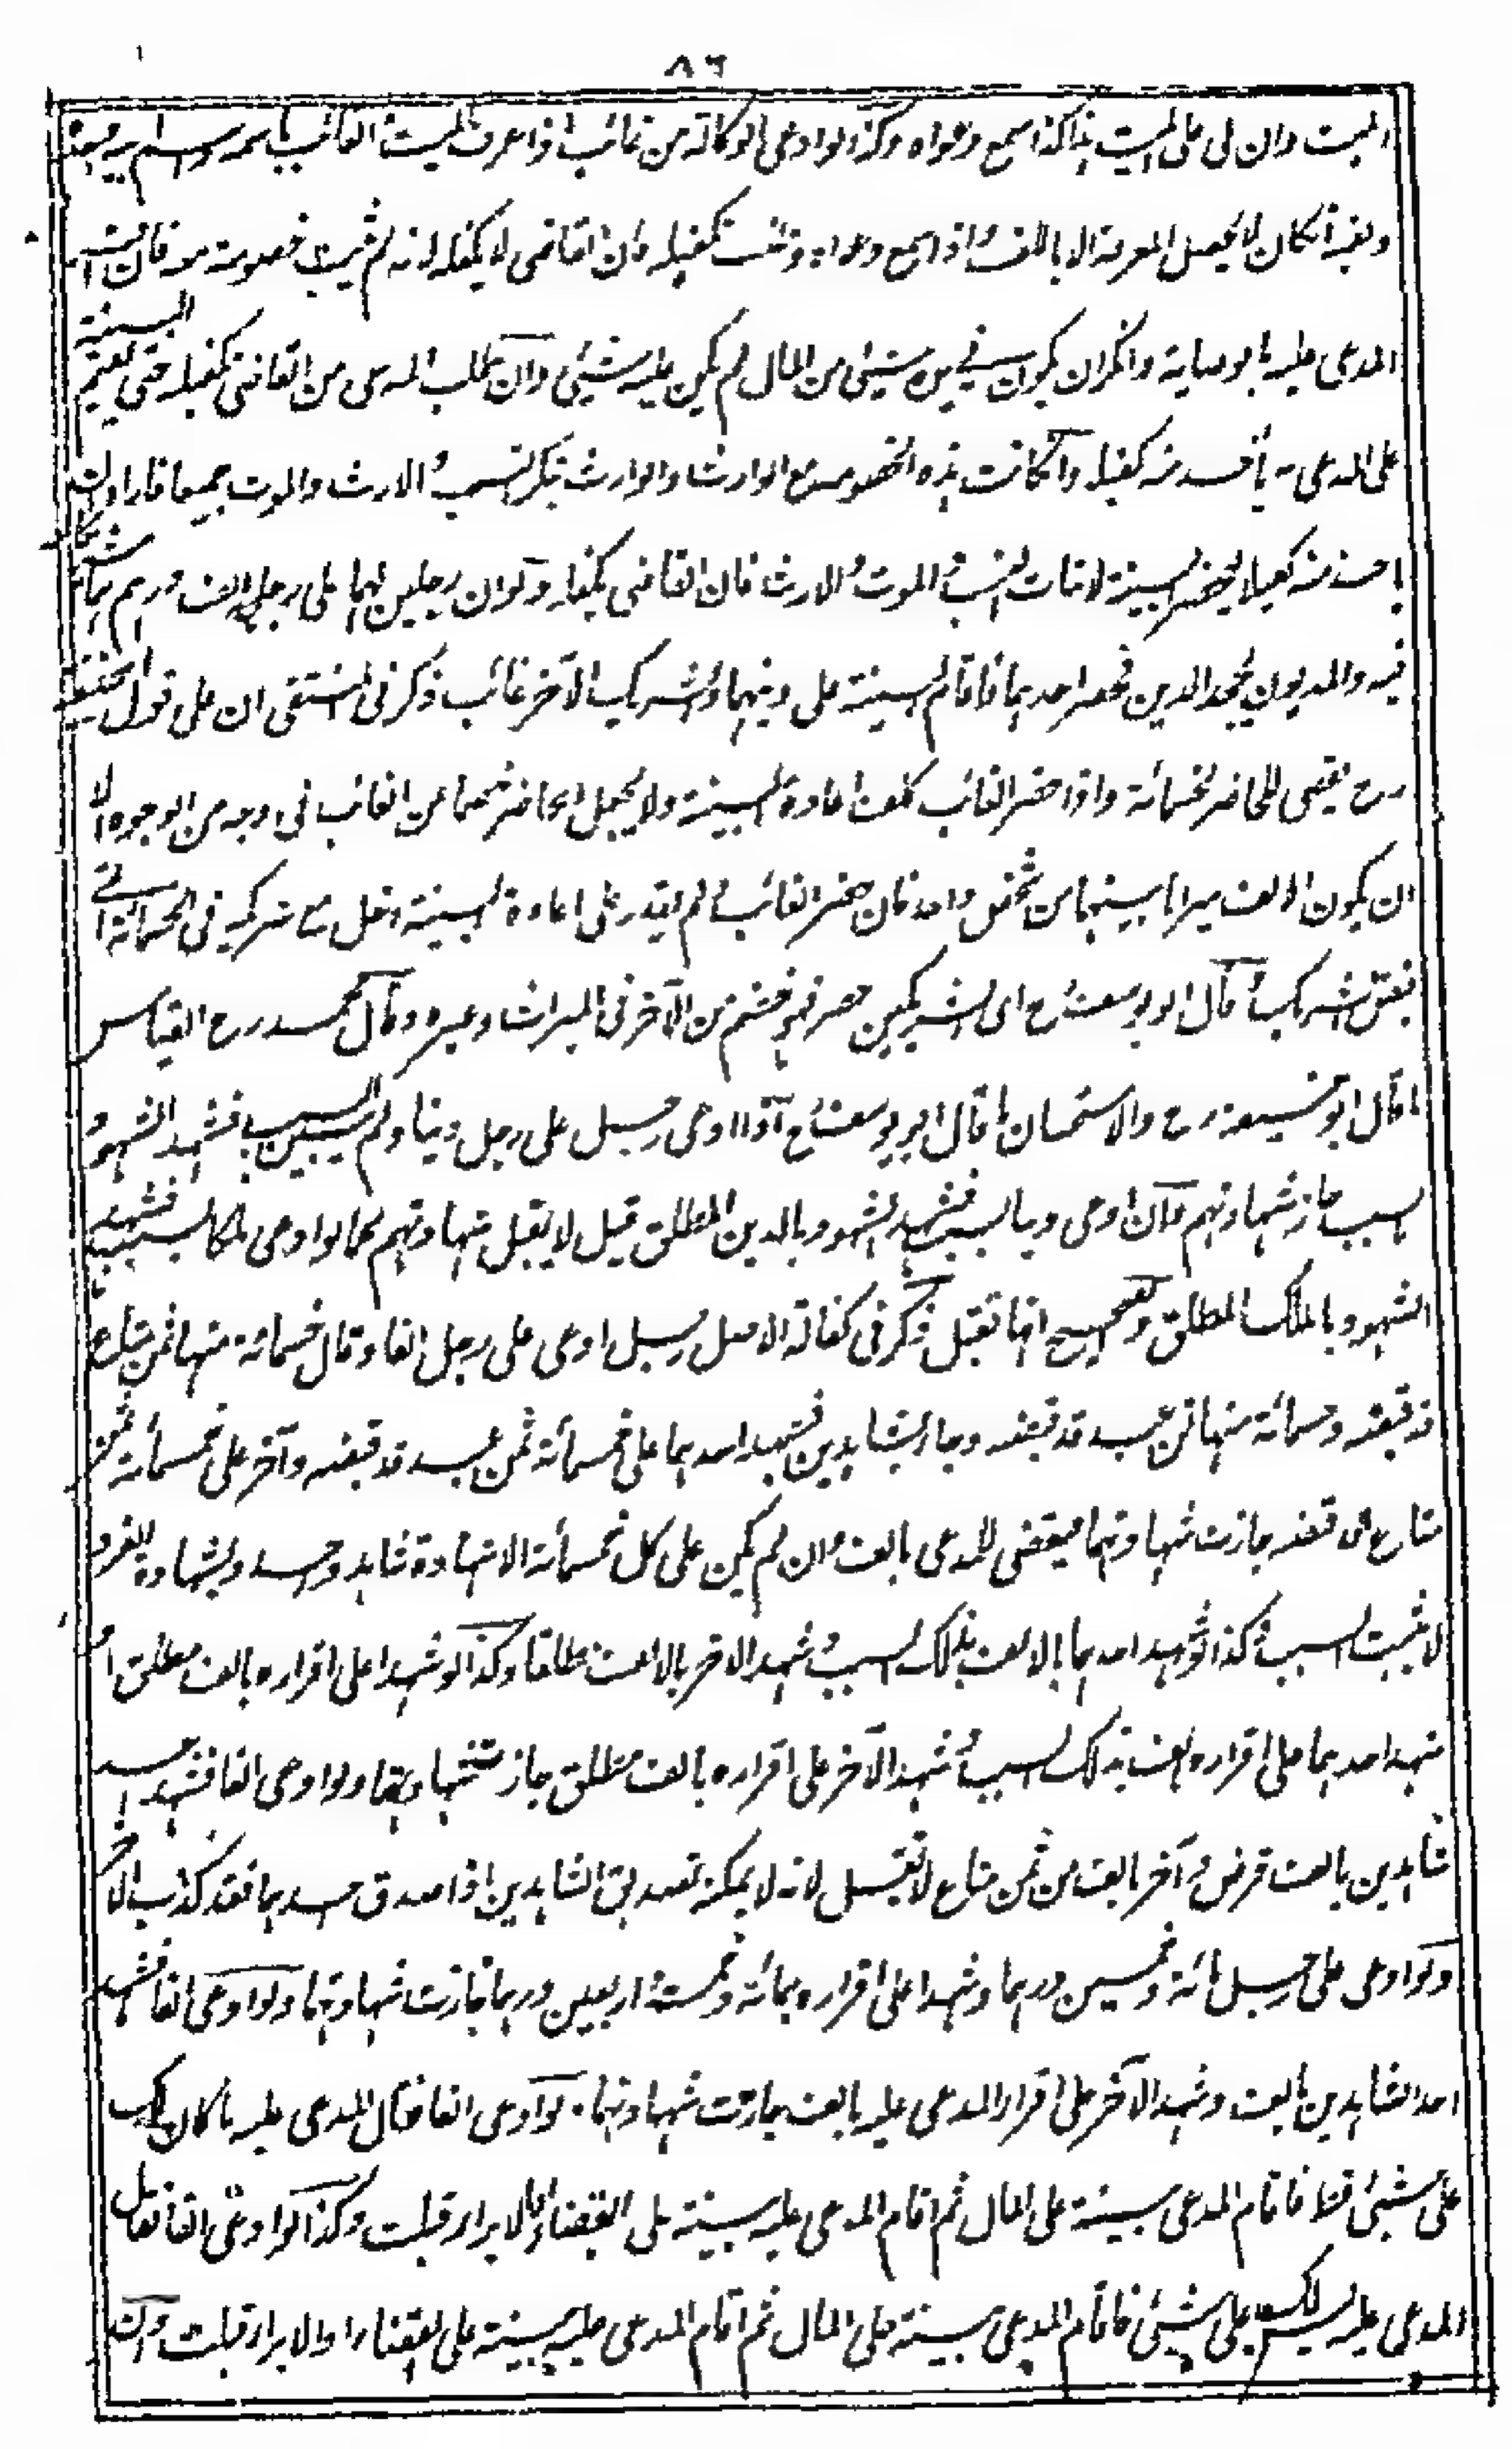 ٨٦
الميت وان لى على الميت كذا كذا سمع دعواه وكذا لو ادعى الوكالة من غائب اذا عرف الميت الغائب باسمه
وبغيره انكان لا يحصل المعرفة الا بذلك اذا سمع دعواه وطلب تكفيله فان القاضى لا يكفله لانه لم يثبت خصومته معه فان
المدعى عليه بالوصاية وانكر ان يكون فى يده شيئ من المال لم يكن عليه شيئ وان طلب المدعى من القاضى تكفيله حتى يقيم البينة
على المدعى به يأخذ منه كفيلا وانكانت هذه الخصومة مع الوارث والوارث ينكر النسب والارث والموت جميعا فاراد ان
يأخذ منه كفيلا ليحضر البينة لاثبات النسب والموت والارث فان القاضى يكفله ولو ان رجلين لهما على رجل الف درهم شركاء
فيه والمديون يجحد الدين فحضر احدهما فاقام البينة على دينهما والشريك الآخر غائب ذكر فى المنتقى ان على قول ابيحنيفة
رح يقضى للحاضر بخمسمائة واذا حضر الغائب كلف اعادة البينة ولا يجعل الحاضر خصما عن الغائب فى وجه من الوجوه الا
ان يكون الالف ميراثا بينهما من شخص واحد فان حضر الغائب ولم يقدر على اعادة البينة دخل مع شريكه فى الخمسمائة التى
قبض شريكه قال ابو يوسف رح اى الشريكين حضر فهو خصم من الآخر فى الميراث وغيره وقال محمد رح القياس
ما قال ابو حنيفة رح والاستحسان ما قال ابو يوسف رح اذا ادعى رجل على رجل دينا ولم يبين السبب فشهد الشهود
بسبب جاز شهادتهم وان ادعى دينا بسبب فشهد الشهود بالدين المطلق قيل لا يقبل شهادتهم كما لو ادعى ملكا بسبب فشهد
الشهود بالملك المطلق والصحيح انها تقبل ذكر فى كفالة الاصل رجل ادعى على رجل الفا وقال خمسمائة منها ثمن متاع
قد قبضه وخمسمائة منها ثمن عبد قد قبضه وجاء بشاهدين فشهد احدهما على خمسمائة ثمن عبد قد قبضه وآخر على خمسمائة ثمن
متاع قد قبضه جازت شهادتهما فيقضى للمدعى بالف وان لم يكن على كل خمسمائة الا شهادة شاهد واحد وبشهادة الفرد
لا يثبت السبب وكذا لو شهد احدهما بالالف بذلك السبب وشهد الاخر بالالف مطلقا وكذا لو شهدا على اقراره بالف مطلق او
شهد احدهما على اقراره بالف بذلك السبب وشهد الآخر على اقراره بالف مطلق جاز شهادتهما ولو ادعى الفا فشهد احد
شاهدين بالف قرض وآخر بالف من ثمن متاع لا تقبل لانه لا يمكنه تصديق الشاهدين اذا صدق احدهما فقد كذب الآخر
ولو ادعى على رجل مائة وخمسين درهما وشهدا على اقراره بمائة وخمسة اربعين درهما جازت شهادتهما ولو ادعى الفا فشهد
احد الشاهدين بالف وشهد الآخر على اقرار المدعى عليه بالف جازت شهادتهما ولو ادعى الفا فقال المدعى عليه ما كان لك
على شيئ قط فاقام المدعى بينة على المال ثم اقام المدعى عليه بينة على القضاء او الابراء قبلت وكذا لو ادعى الفا فقال
المدعى عليه ليس لك على شيئ فاقام المدعى بينة على المال ثم اقام المدعى عليه بينة على القضاء او الابراء قبلت وان